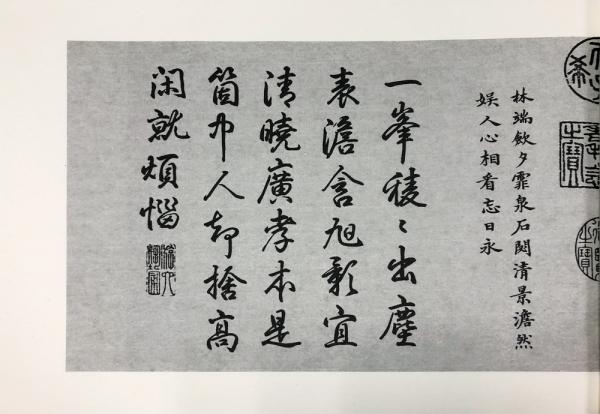 林端歛夕霏泉石閟清景澹然
娱人心相看忘日永
一峯稜〻出塵
表澹含旭彩宜
清曉廣孝本是
箇中人却捨高
闲就煩惱